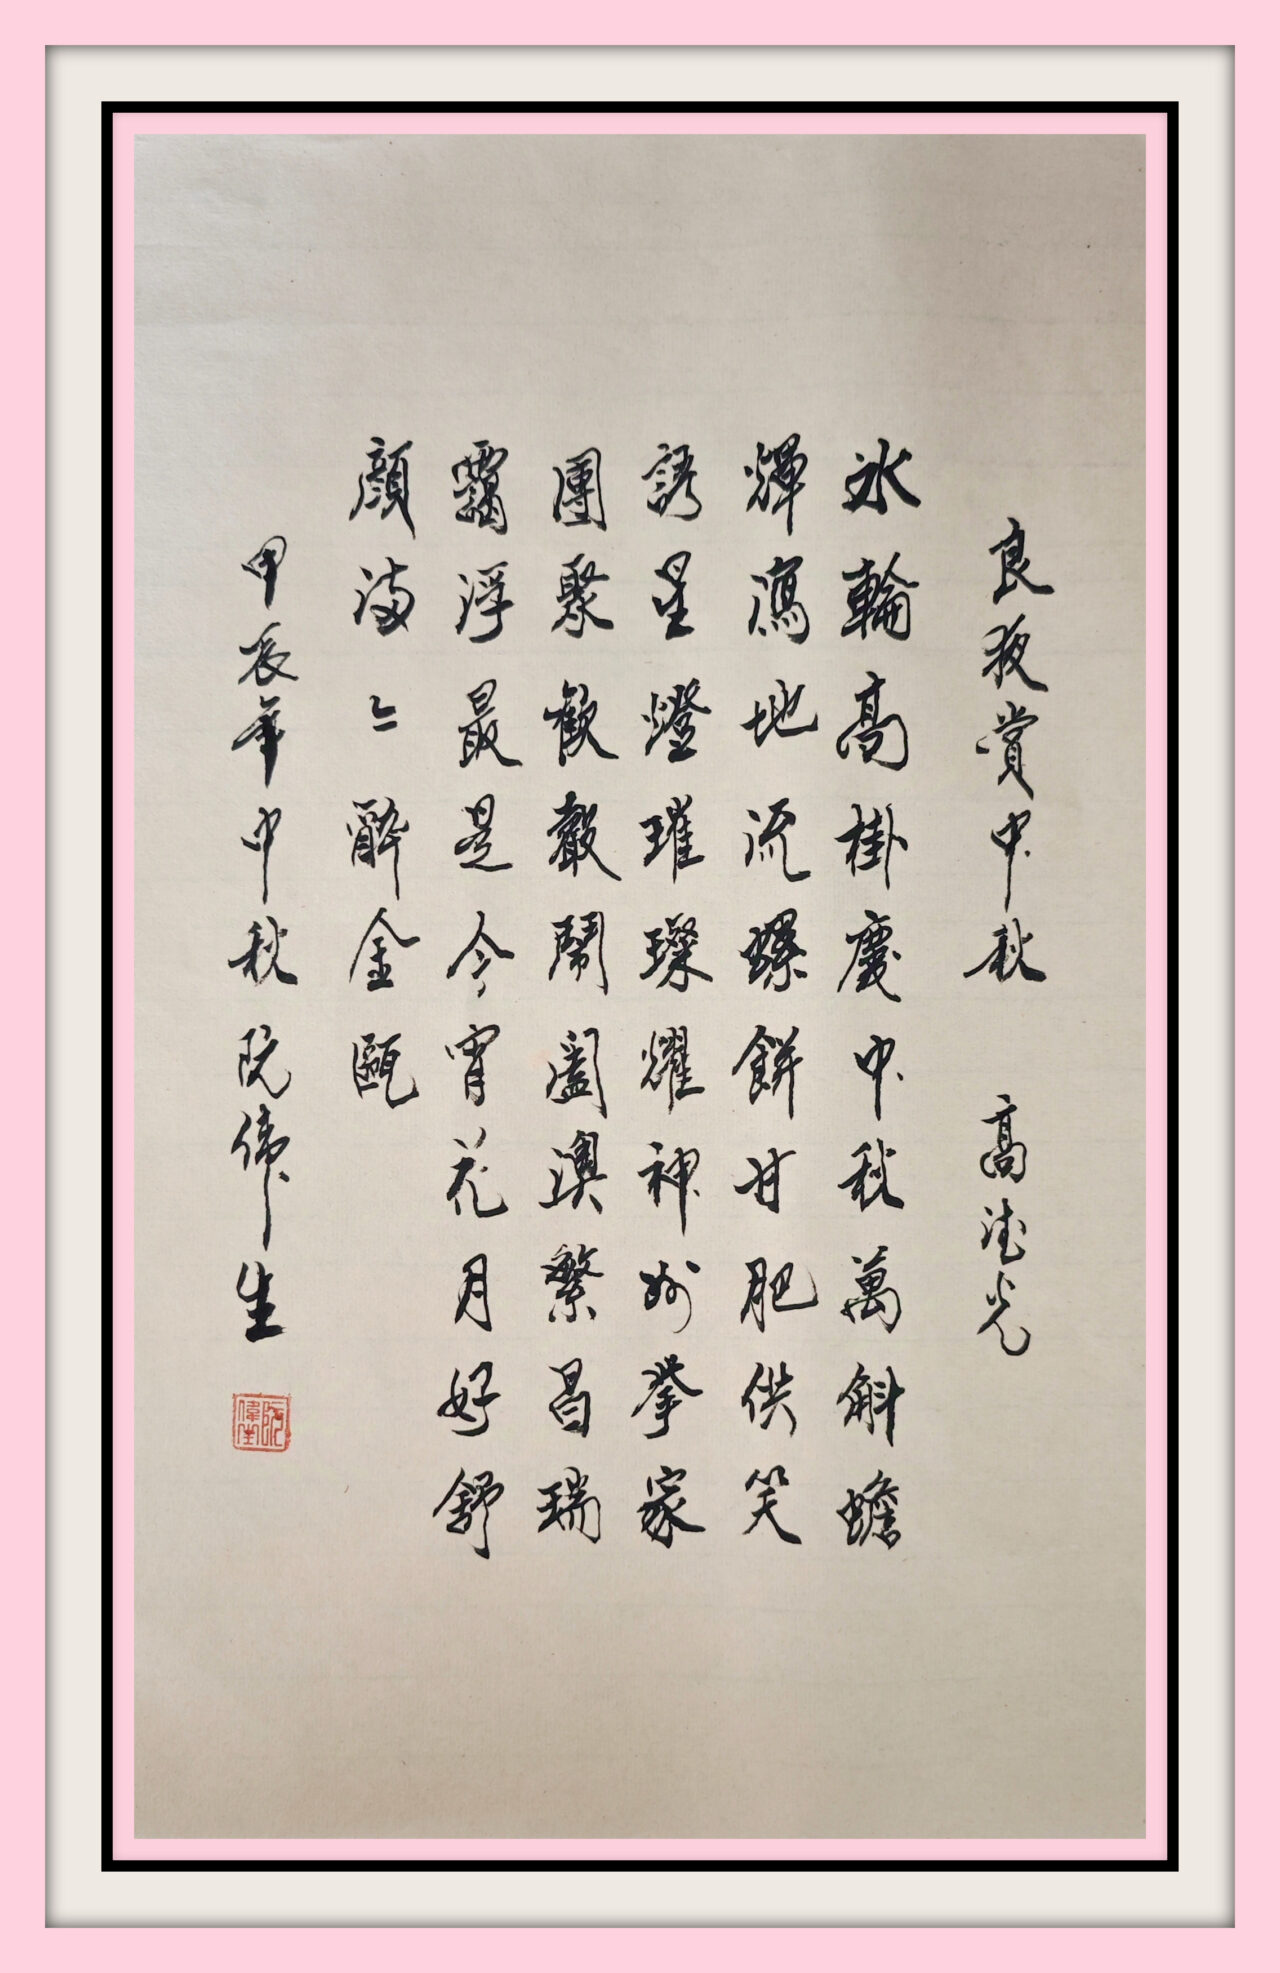 良夜賞中秋 高德光
冰輪高掛慶中秋萬斛蟾
輝瀉地流螺餅甘肥供笑
誘星燈璀璨耀神州舉家
團聚歡聲鬧闔澳繁昌瑞
靄浮最是今宵花月好舒
顏滿〻醉金甌
甲辰年中秋阮偉生
阮偉生